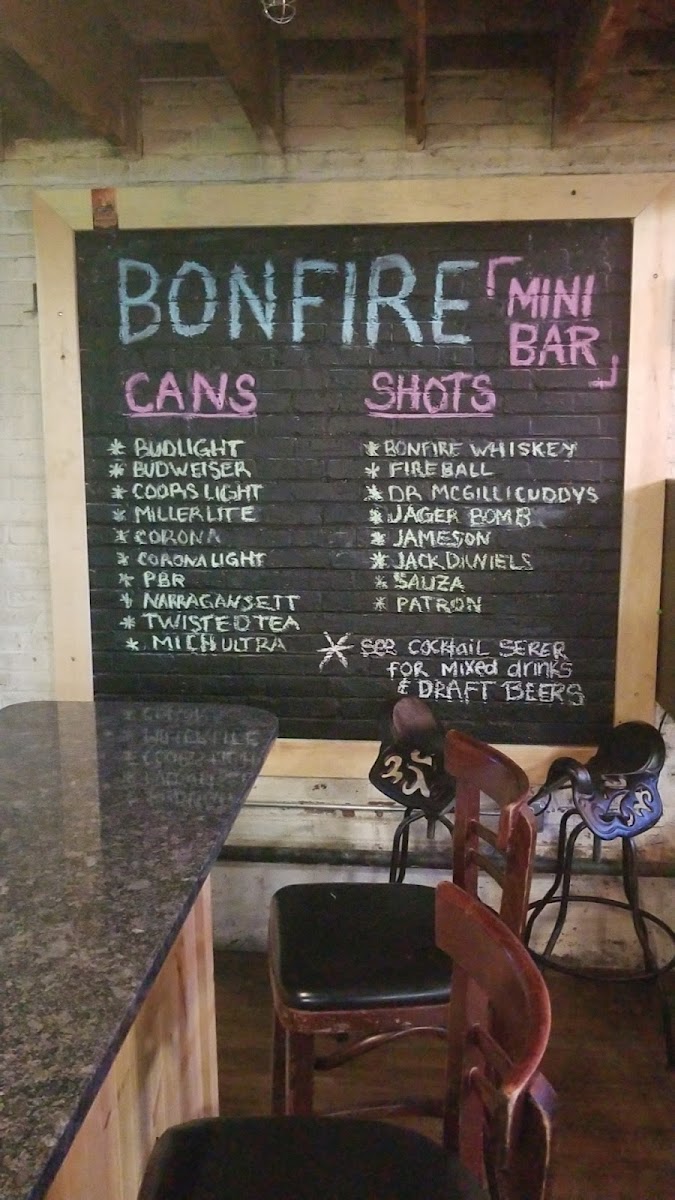 BONFIRE
MINI
BAR
CANS
* BUDLIGHT
* BUDWEISER
* COORS LIGHT
* MILLER LITE
* CORONA
* CORONA LIGHT
* PBR
* NARRAGANSETT
* TWISTED TEA
* MICH ULTRA
SHOTS
* BONFIRE WHISKEY
* FIREBALL
* DR MCGILLICUDDYS
* JAGER BOMB
* JAMESON
* JACK DANIELS
* SAUZA
* PATRON
* SEE COCKTAIL SERER
FOR MIXED drinks
& DRAFT BEERS